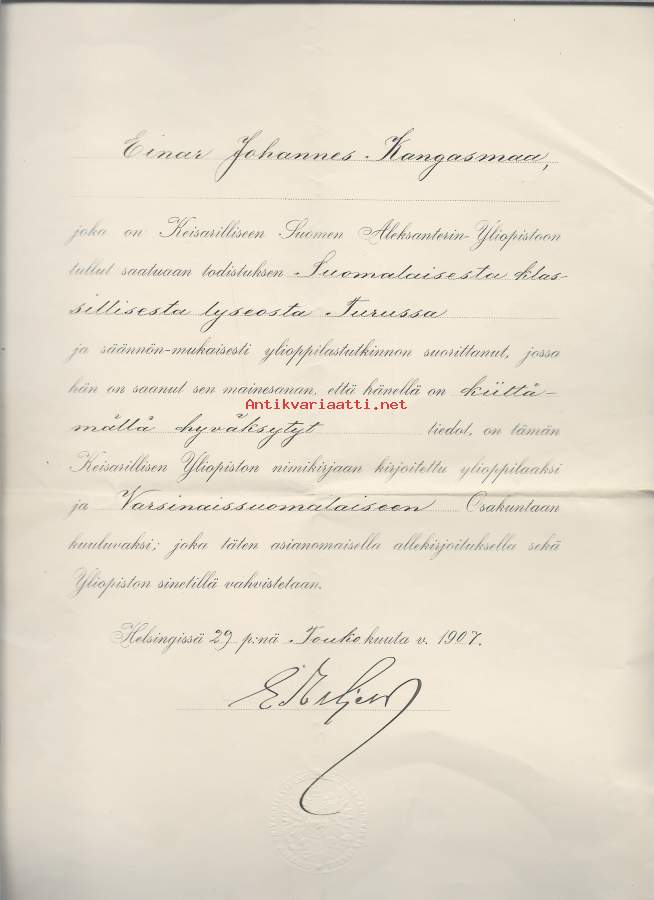 Einar Johannes Kangasmaa,
joka on Keisarilliseen Suomen Aleksanterin-Yliopistoon
tullut saatuaan todistuksen Suomalaisesta klas-
sillisesta lyseosta Turussa
ja säännön-mukaisesti ylioppilastutkinnon suorittanut, jossa
hän on saanut sen mainesanan, että hänellä on kiittä-
Antikvariaatti.net
mällä hyväksytyt tiedot, on tämän
Keisarillisen Yliopiston nimikirjaan kirjoitettu ylioppilaaksi
ja Varsinaissuomalaiseen Osakuntaan
kuuluvaksi; joka täten asianomaisella allekirjoituksella sekä
Yliopiston sinetillä vahvistetaan.
Helsingissä 29 p:nä Toukokuuta v. 1907.